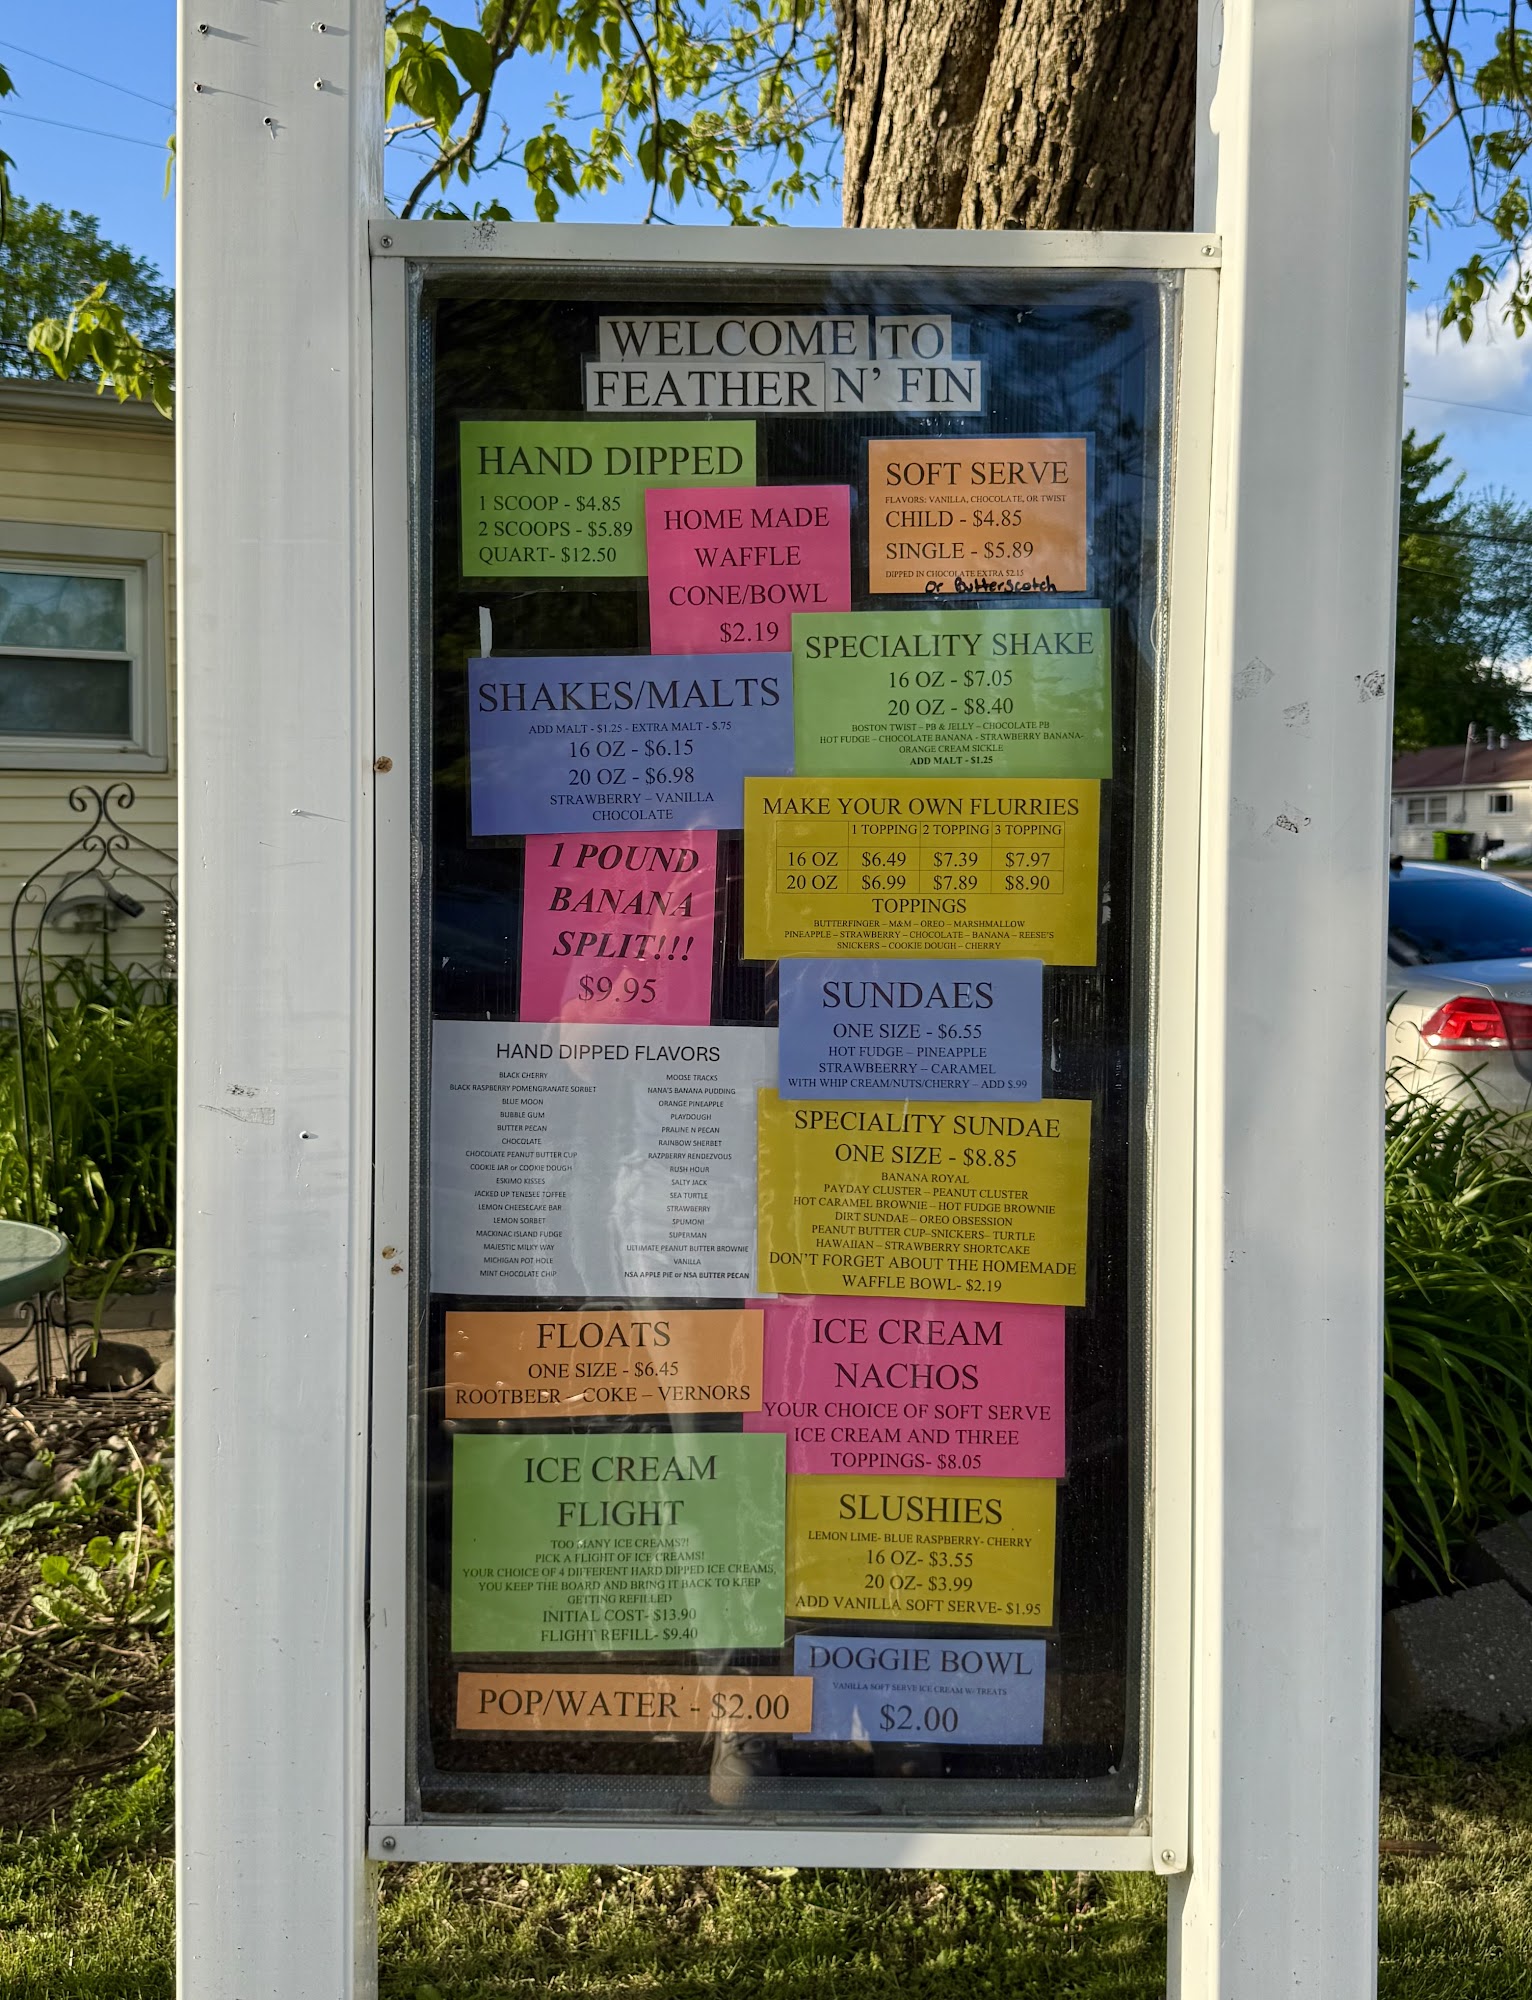 WELCOME TO
FEATHER N' FIN
HAND DIPPED
1 SCOOP - $4.85
2 SCOOPS - $5.89
QUART- $12.50
HOME MADE
WAFFLE
CONE/BOWL
$2.19
SOFT SERVE
FLAVORS: VANILLA, CHOCOLATE, OR TWIST
CHILD - $4.85
SINGLE - $5.89
DIPPED IN CHOCOLATE EXTRA $2.15
or Butterscotch
SHAKES/MALTS
ADD MALT - $1.25 - EXTRA MALT - $.75
16 OZ - $6.15
20 OZ - $6.98
STRAWBERRY – VANILLA
CHOCOLATE
SPECIALITY SHAKE
16 OZ - $7.05
20 OZ - $8.40
BOSTON TWIST – PB & JELLY – CHOCOLATE PB
HOT FUDGE – CHOCOLATE BANANA - STRAWBERRY BANANA-
ORANGE CREAM SICKLE
ADD MALT - $1.25
MAKE YOUR OWN FLURRIES
1 TOPPING 2 TOPPING 3 TOPPING
16 OZ $6.49 $7.39 $7.97
20 OZ $6.99 $7.89 $8.90
TOPPINGS
BUTTERFINGER – M&M – OREO – MARSHMALLOW
PINEAPPLE – STRAWBERRY – CHOCOLATE – BANANA – REESE'S
SNICKERS – COOKIE DOUGH – CHERRY
1 POUND
BANANA
SPLIT!!!
$9.95
SUNDAES
ONE SIZE - $6.55
HOT FUDGE – PINEAPPLE
STRAWBEERRY – CARAMEL
WITH WHIP CREAM/NUTS/CHERRY – ADD $.99
HAND DIPPED FLAVORS
BLACK CHERRY
BLACK RASPBERRY POMENGRANATE SORBET
BLUE MOON
BUBBLE GUM
BUTTER PECAN
CHOCOLATE
CHOCOLATE PEANUT BUTTER CUP
COOKIE JAR or COOKIE DOUGH
ESKIMO KISSES
JACKED UP TENESEE TOFFEE
LEMON CHEESECAKE BAR
LEMON SORBET
MACKINAC ISLAND FUDGE
MAJESTIC MILKY WAY
MICHIGAN POT HOLE
MINT CHOCOLATE CHIP
MOOSE TRACKS
NANA'S BANANA PUDDING
ORANGE PINEAPPLE
PLAYDOUGH
PRALINE N PECAN
RAINBOW SHERBET
RAZPBERRY RENDEZVOUS
RUSH HOUR
SALTY JACK
SEA TURTLE
STRAWBERRY
SPUMONI
SUPERMAN
ULTIMATE PEANUT BUTTER BROWNIE
VANILLA
NSA APPLE PIE or NSA BUTTER PECAN
SPECIALITY SUNDAE
ONE SIZE - $8.85
BANANA ROYAL
PAYDAY CLUSTER – PEANUT CLUSTER
HOT CARAMEL BROWNIE – HOT FUDGE BROWNIE
DIRT SUNDAE – OREO OBSESSION
PEANUT BUTTER CUP–SNICKERS– TURTLE
HAWAIIAN – STRAWBERRY SHORTCAKE
DON'T FORGET ABOUT THE HOMEMADE
WAFFLE BOWL- $2.19
FLOATS
ONE SIZE - $6.45
ROOTBEER – COKE – VERNORS
ICE CREAM
NACHOS
YOUR CHOICE OF SOFT SERVE
ICE CREAM AND THREE
TOPPINGS- $8.05
ICE CREAM
FLIGHT
TOO MANY ICE CREAMS?!
PICK A FLIGHT OF ICE CREAMS!
YOUR CHOICE OF 4 DIFFERENT HARD DIPPED ICE CREAMS,
YOU KEEP THE BOARD AND BRING IT BACK TO KEEP
GETTING REFILLED
INITIAL COST- $13.90
FLIGHT REFILL- $9.40
SLUSHIES
LEMON LIME- BLUE RASPBERRY- CHERRY
16 OZ- $3.55
20 OZ- $3.99
ADD VANILLA SOFT SERVE- $1.95
POP/WATER - $2.00
DOGGIE BOWL
VANILLA SOFT SERVE ICE CREAM W/ TREATS
$2.00